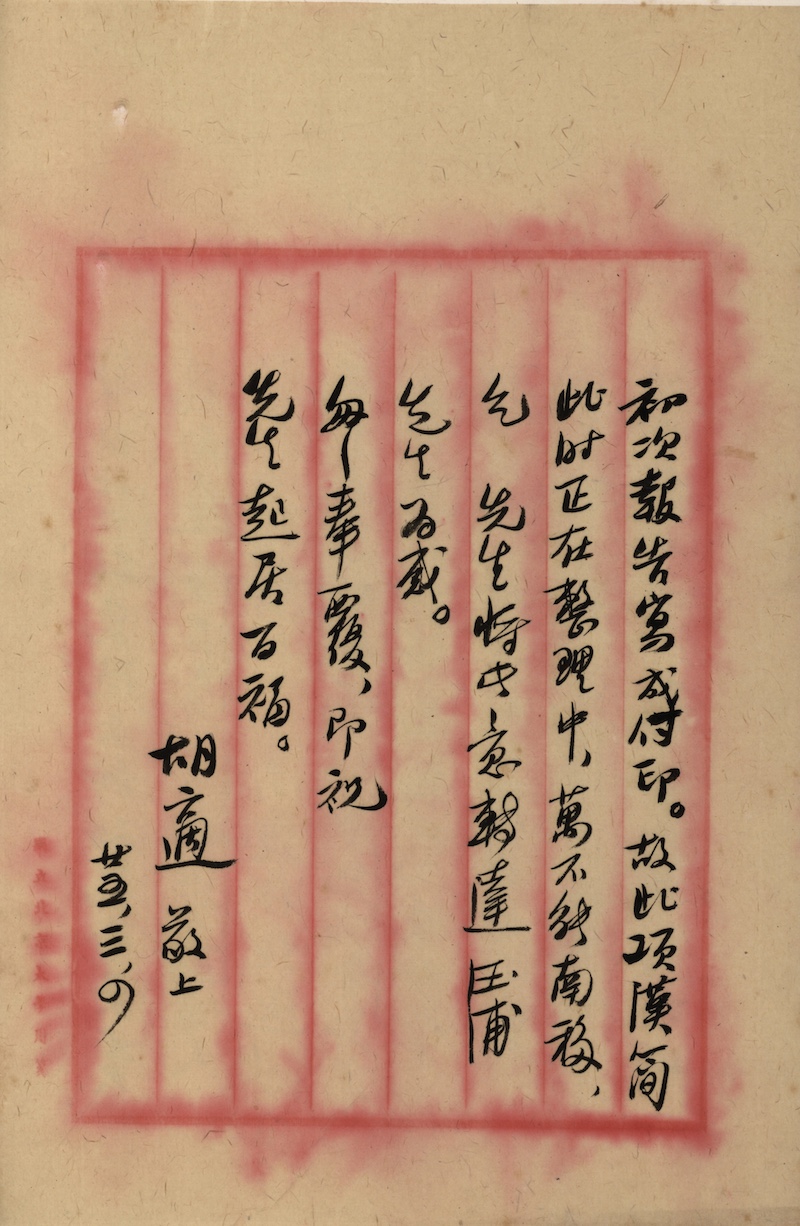 初次報告寫成付印。故此項漢簡
此时正在整理中，萬不能南移，
乞　先生將此意轉達　玉甫
先生為感。
匆匆奉覆，即祝
先生起居百福。
胡適 敬上
廿五，三，四